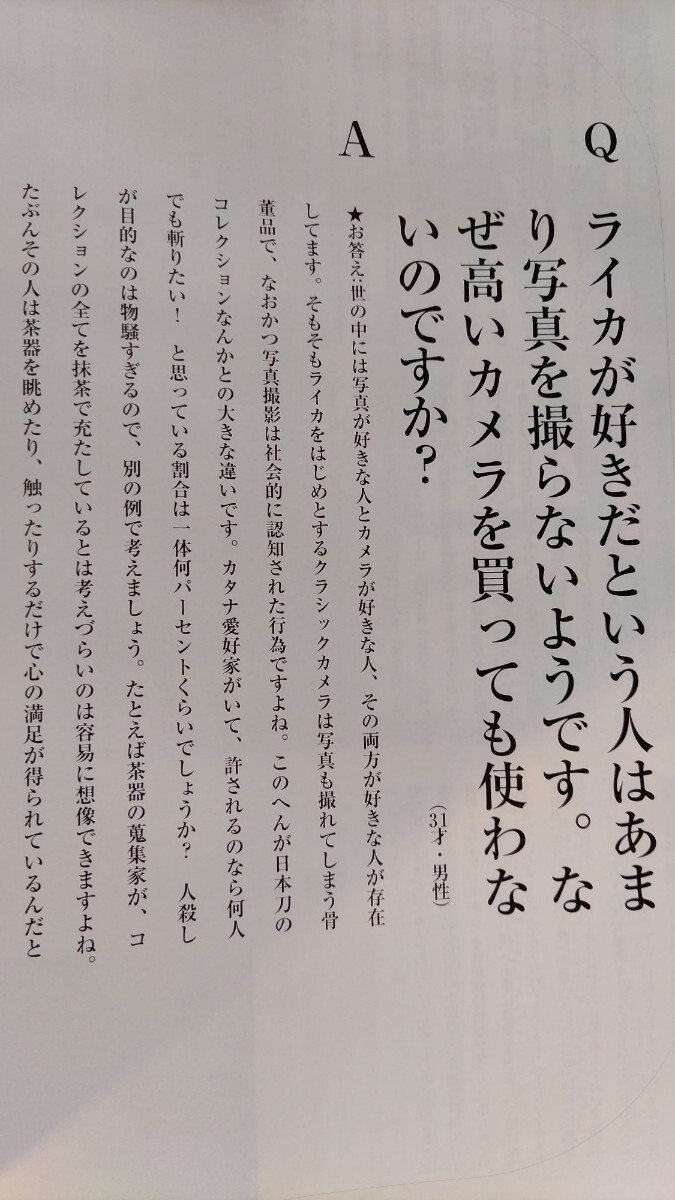 Q
ライカが好きだという人はあま
り写真を撮らないようです。な
ぜ高いカメラを買っても使わな
いのですか？
（31才・男性）
A
★お答え：世の中には写真が好きな人とカメラが好きな人、その両方が好きな人が存在
してます。そもそもライカをはじめとするクラシックカメラは写真も撮れてしまう骨
董品で、なおかつ写真撮影は社会的に認知された行為ですよね。このへんが日本刀の
コレクションなんかとの大きな違いです。カタナ愛好家がいて、許されるのなら何人
でも斬りたい！　と思っている割合は一体何パーセントくらいでしょうか？　人殺し
が目的なのは物騒すぎるので、別の例で考えましょう。たとえば茶器の蒐集家が、コ
レクションの全てを抹茶で充たしているとは考えづらいのは容易に想像できますよね。
たぶんその人は茶器を眺めたり、触ったりするだけで心の満足が得られているんだと